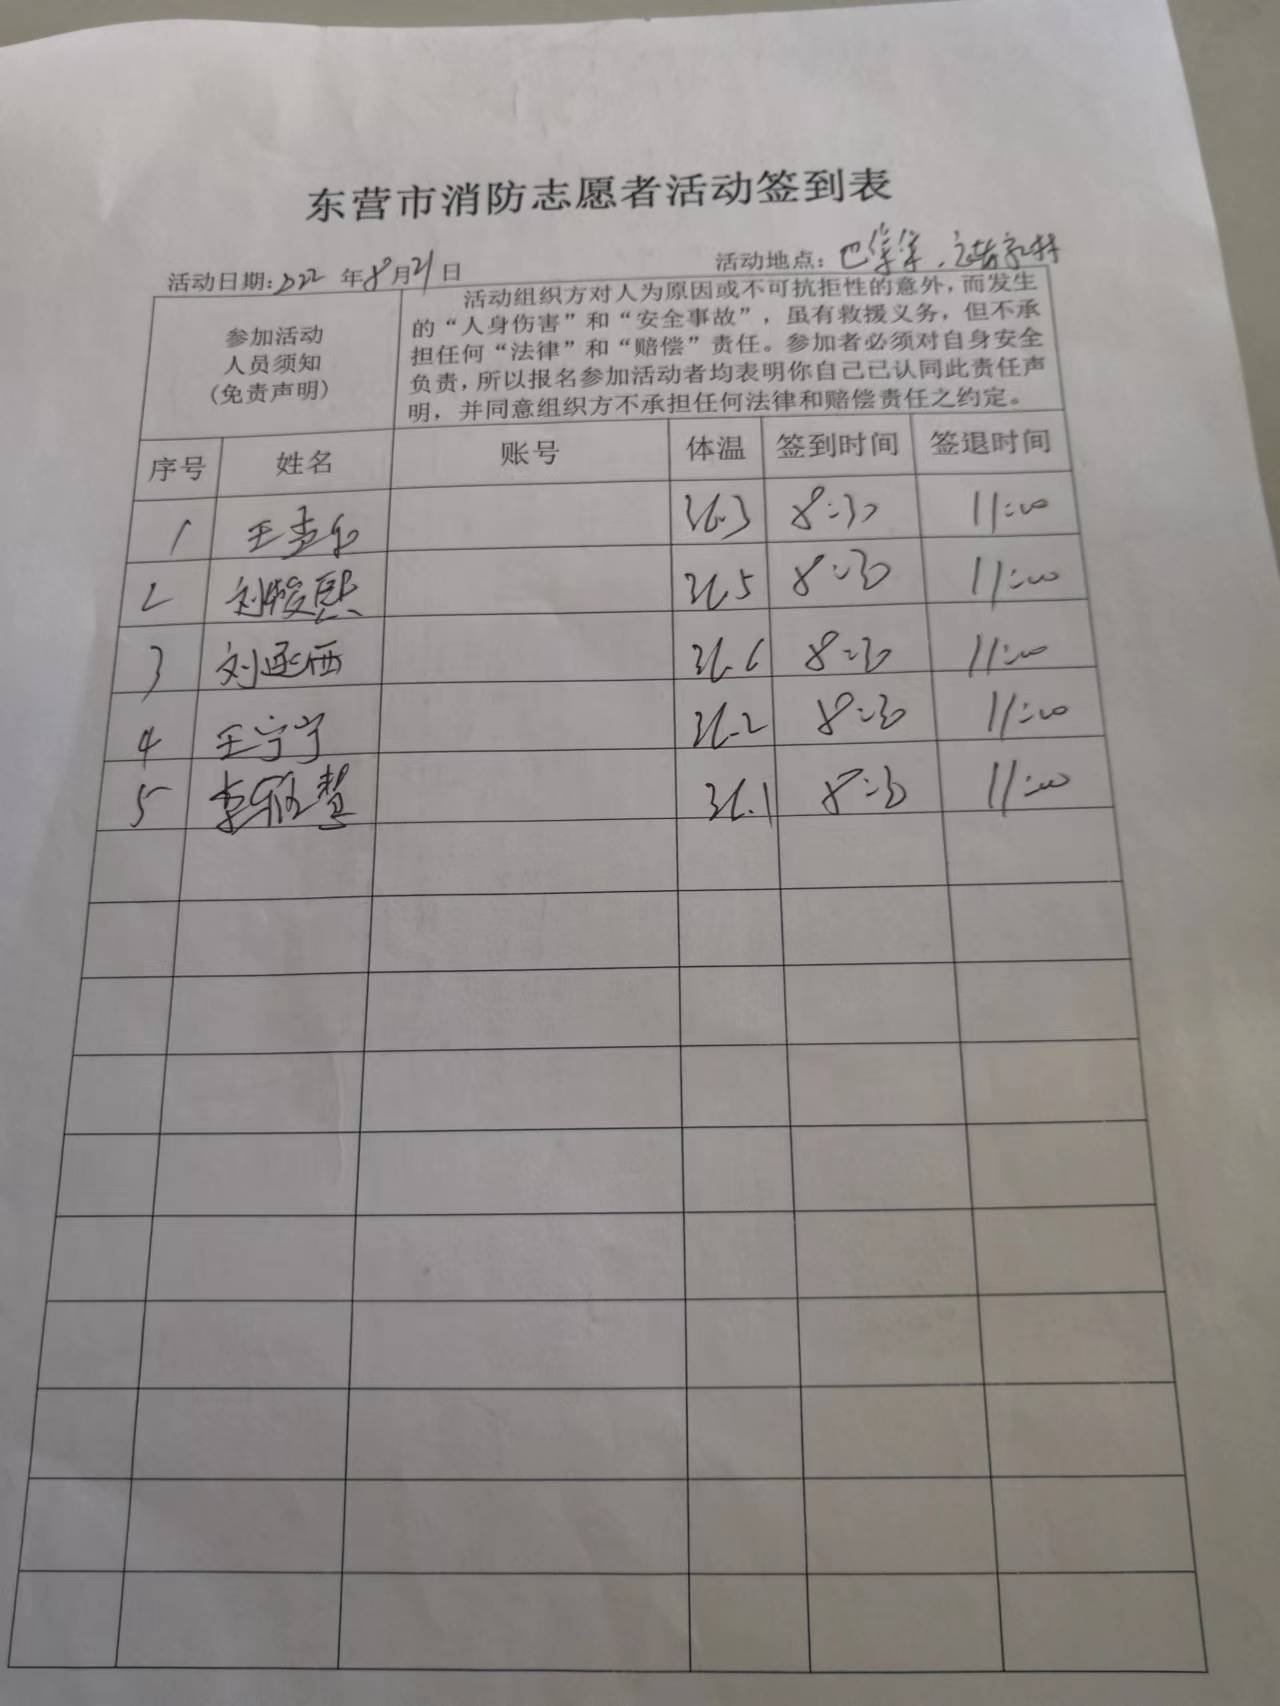 东营市消防志愿者活动签到表
活动日期:2022年8月21日 活动地点:
参加活动
人员须知
(免责声明)
活动组织方对人为原因或不可抗拒性的意外,而发生
的“人身伤害”和“安全事故”,虽有救援义务,但不承
担任何“法律”和“赔偿”责任。参加者必须对自身安全
负责,所以报名参加活动者均表明你自己已认同此责任声
明,并同意组织方不承担任何法律和赔偿责任之约定。
序号 姓名 账号 体温 签到时间 签退时间
1 王 36.3 8:30 11:00
2 刘骏熙 36.5 8:30 11:00
3 刘丞西 36.6 8:30 11:00
4 王宁宁 36.2 8:30 11:00
5 李 慧 36.1 8:30 11:00